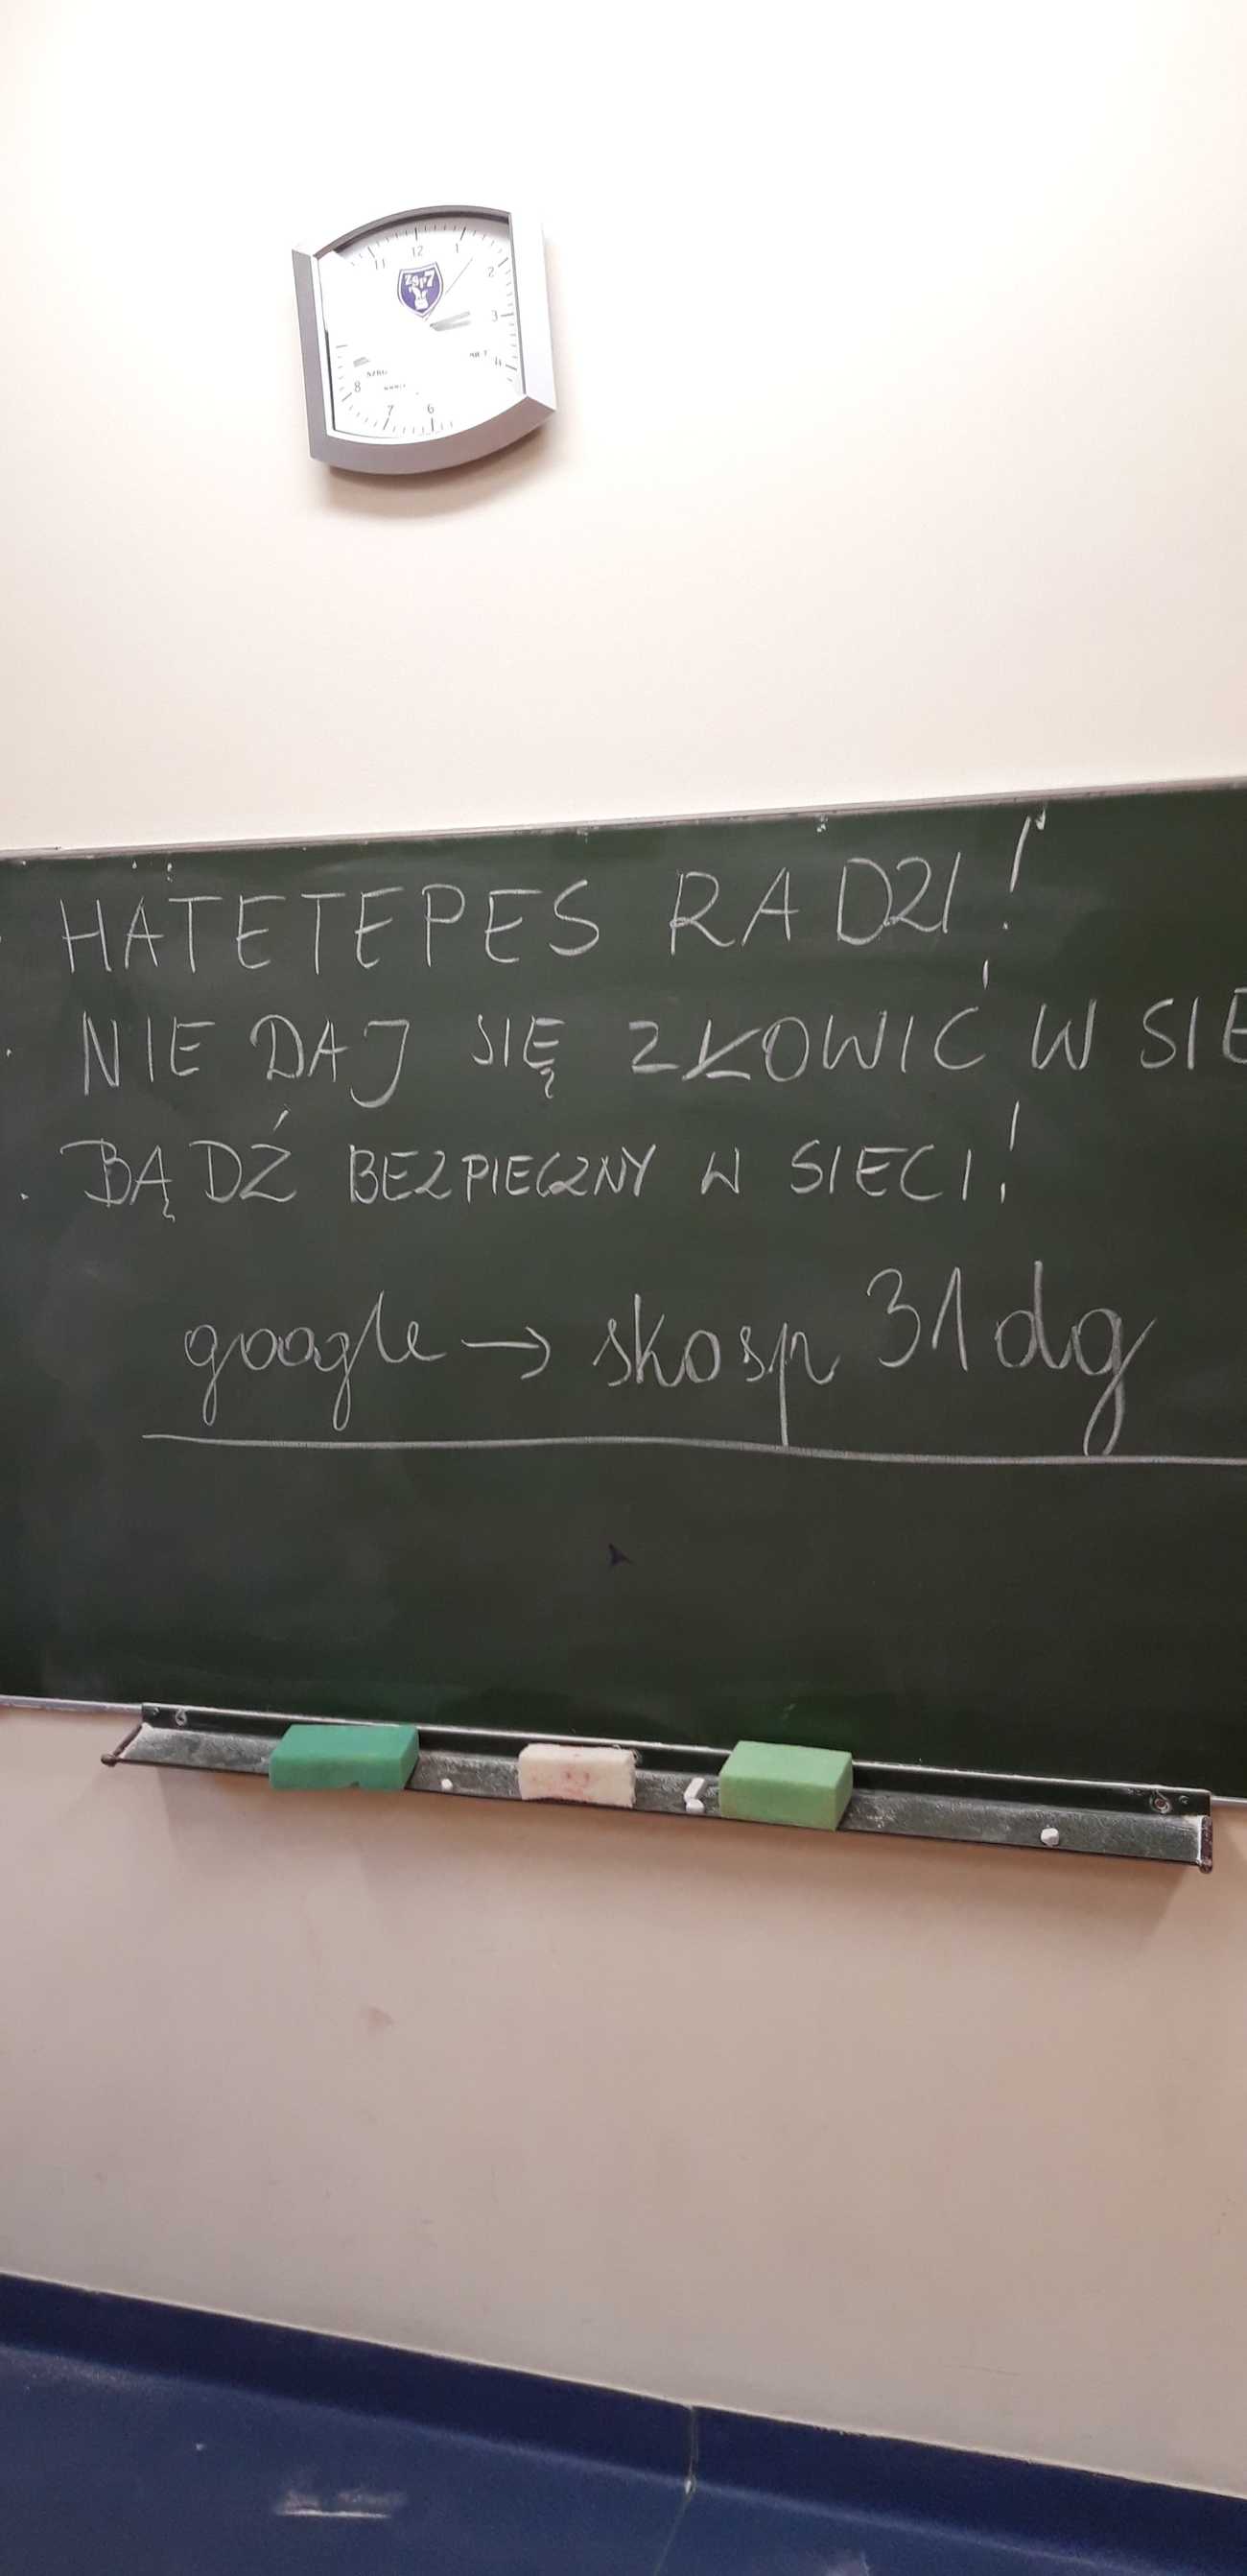 12
11
1
2
3
4
6
7
8
Zgp7
HATETEPES RADZI!
NIE DAJ SIĘ ZŁOWIĆ W SIE
BĄDŹ BEZPIECZNY W SIECI!
google → skosp 31dg